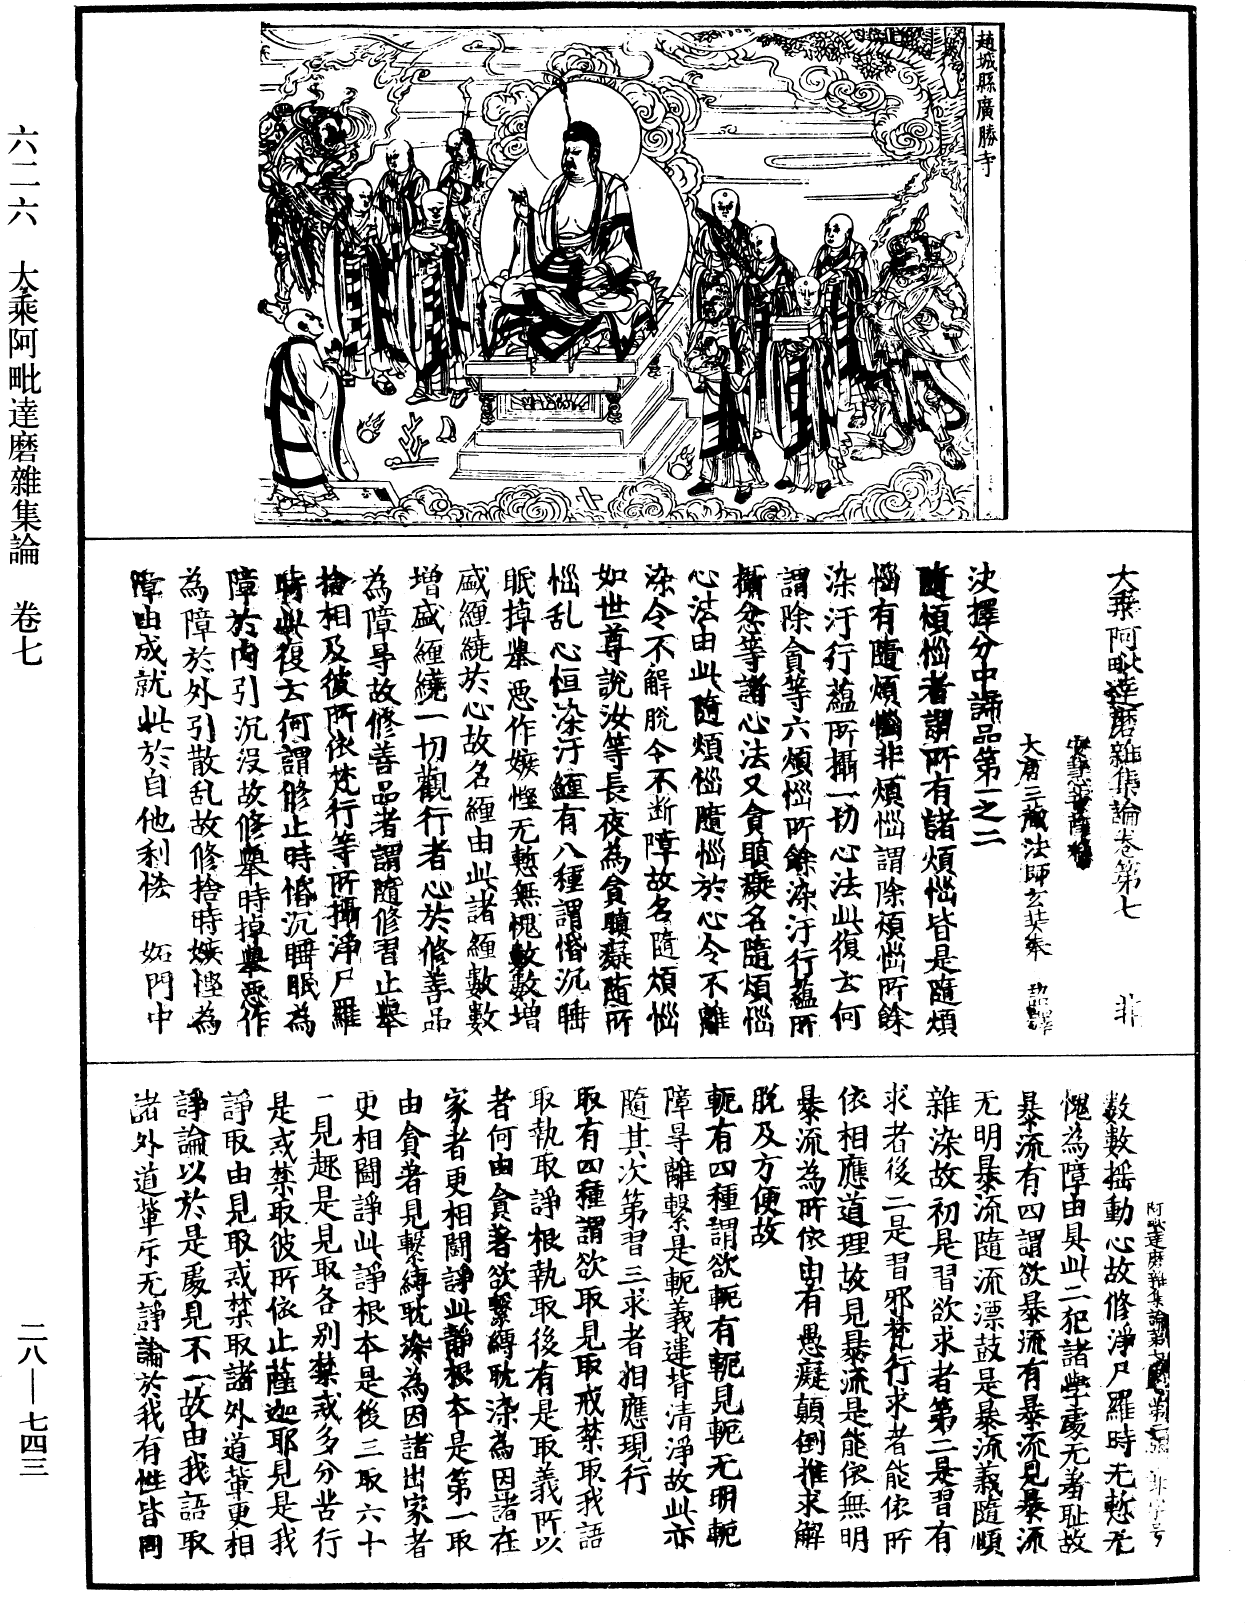 趙城縣廣勝寺
大乘阿毗達磨雜集論卷第七　非
安慧菩薩糅
大唐三藏法師玄奘奉　詔譯
決擇分中諦品第一之二
隨煩惱者謂所有諸煩惱皆是隨煩
惱有隨煩惱非煩惱謂除煩惱所餘
染汙行蘊所攝一切心法此復云何
謂除貪等六煩惱所餘染汙行蘊所
攝忿等諸心法又貪瞋癡名隨煩惱
心法由此隨煩惱隨惱於心令不離
染令不解脫令不斷障故名隨煩惱
如世尊說汝等長夜為貪瞋癡隨所
惱乱心恒染汙纏有八種謂惛沉睡
眠掉舉惡作嫉慳无慙無愧數數增
盛纏繞於心故名纏由此諸纏數數
增盛纏繞一切觀行者心於修善品
為障导故修善品者謂隨修習止舉
捨相及彼所依梵行等所攝淨尸羅
時此復云何謂修止時惛沉睡眠為
障於內引沉沒故修舉時掉舉惡作
為障於外引散乱故修捨時嫉慳為
障由成就此於自他利悋　妬門中
数数搖動心故修淨尸羅時无慙无
愧為障由具此二犯諸學處无羞耻故
暴流有四謂欲暴流有暴流見暴流
无明暴流隨流漂鼓是暴流義隨順
雜染故初是習欲求者第二是習有
求者後二是習邪梵行求者能依所
依相應道理故見暴流是能依無明
暴流為所依由有愚癡顛倒推求解
脫及方便故
軛有四種謂欲軛有軛見軛无明軛
障导離繫是軛義違背清淨故此亦
隨其次第習三求者相應現行
取有四種謂欲取見取戒禁取我語
取執取諍根執取後有是取義所以
者何由貪著欲繫縛耽染為因諸在
家者更相鬪諍此諍根本是第一取
由貪著見繫縛耽染為因諸出家者
更相鬪諍此諍根本是後三取六十
二見趣是見取各別禁戒多分苦行
是戒禁取彼所依止薩迦耶見是我
語取由見取戒禁取諸外道輩更相
諍論以於是處見不一故由我語取
諸外道輩互无諍論於我有性皆同
阿毗達磨雜集論第七
六二六　大乘阿毗達磨雜集論　卷七
二八—七四三